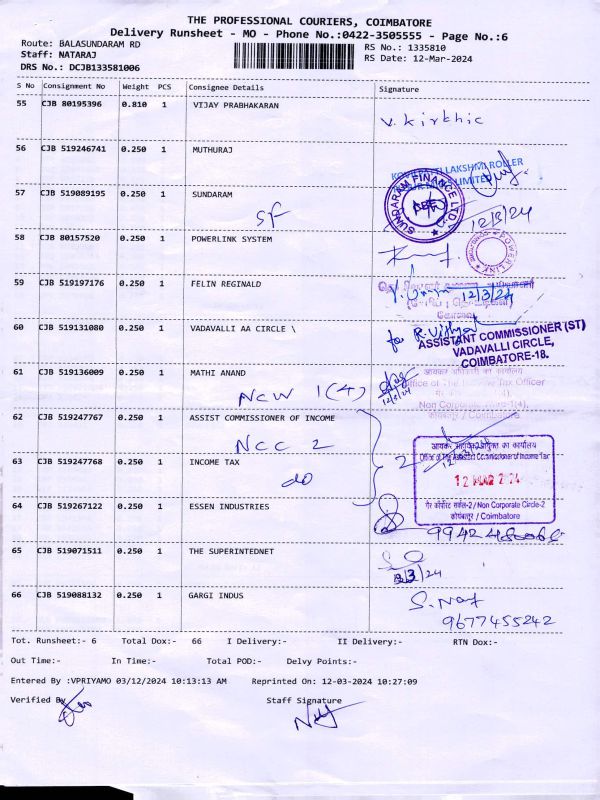 THE PROFESSIONAL COURIERS, COIMBATORE
Delivery Runsheet - MO - Phone No.:0422-3505555 - Page No.:6
Route: BALASUNDARAM RD
RS No.: 1335810
Staff: NATARAJ
RS Date: 12-Mar-2024
DRS No.: DCJB133581006
S No Consignment No Weight PCS Consignee Details Signature
55 CJB 80195396 0.810 1 VIJAY PRABHAKARAN
V. Kirthic
56 CJB 519246741 0.250 1 MUTHURAJ
LAKSHMI ROLLER
LIMITED
57 CJB 519089195 0.250 1 SUNDARAM
SF
SUNDARAM FINANCE LTD
12/3/24
58 CJB 80157520 0.250 1 POWERLINK SYSTEM
POWER LINK
59 CJB 519197176 0.250 1 FELIN REGINALD
12/3/24
60 CJB 519131080 0.250 1 VADAVALLI AA CIRCLE \
for R. Vidhya
ASSISTANT COMMISSIONER (ST)
VADAVALLI CIRCLE,
COIMBATORE-18.
61 CJB 519136009 0.250 1 MATHI ANAND
NCW 1(4)
आयकर अधिकारी का कार्यालय
Office of The Income Tax Officer
Non Corporate
कोयंबत्तूर / Coimbatore
62 CJB 519247767 0.250 1 ASSIST COMMISSIONER OF INCOME
NCC 2
2
Office of The Assistant Commissioner of Income Tax
63 CJB 519247768 0.250 1 INCOME TAX
do
12 MAR 2024
गैर कॉर्पोरेट सर्कल-2 / Non Corporate Circle-2
कोयंबत्तूर / Coimbatore
64 CJB 519267122 0.250 1 ESSEN INDUSTRIES
65 CJB 519071511 0.250 1 THE SUPERINTEDNET
3/24
66 CJB 519088132 0.250 1 GARGI INDUS
9677455242
Tot. Runsheet:- 6 Total Dox:- 66 I Delivery:- II Delivery:- RTN Dox:-
Out Time:- In Time:- Total POD:- Delvy Points:-
Entered By :VPRIYAMO 03/12/2024 10:13:13 AM Reprinted On: 12-03-2024 10:27:09
Verified By Staff Signature